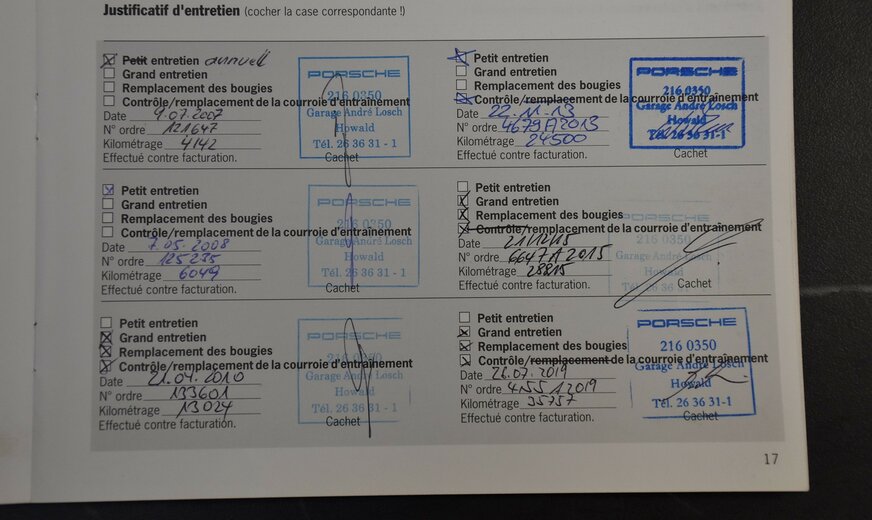 Justificatif d'entretien (cocher la case correspondante !)
Petit entretien annuell
Grand entretien
Remplacement des bougies
Contrôle/remplacement de la courroie d'entraînement
Date 9.07.2007
N° ordre 121647
Kilométrage 4142
Effectué contre facturation.
PORSCHE
216 0350
Garage André Losch
Howald
Tél. 26 36 31 - 1
Cachet
Petit entretien
Grand entretien
Remplacement des bougies
Contrôle/remplacement de la courroie d'entraînement
Date 7.05.2008
N° ordre 125235
Kilométrage 6049
Effectué contre facturation.
PORSCHE
216 0350
Garage André Losch
Howald
Tél. 26 36 31 - 1
Cachet
Petit entretien
Grand entretien
Remplacement des bougies
Contrôle/remplacement de la courroie d'entraînement
Date 21.04.2010
N° ordre 133601
Kilométrage 13024
Effectué contre facturation.
PORSCHE
216 0350
Garage André Losch
Howald
Tél. 26 36 31 - 1
Cachet
Petit entretien
Grand entretien
Remplacement des bougies
Contrôle/remplacement de la courroie d'entraînement
Date 22.11.13
N° ordre 4679A2013
Kilométrage 24500
Effectué contre facturation.
PORSCHE
216 0350
Garage André Losch
Howald
Tél. 26 36 31 - 1
Cachet
Petit entretien
Grand entretien
Remplacement des bougies
Contrôle/remplacement de la courroie d'entraînement
Date 21/12/15
N° ordre 6647A2015
Kilométrage 28815
Effectué contre facturation.
PORSCHE
216 0350
Garage André Losch
Howald
Tél. 26 36 31 - 1
Cachet
Petit entretien
Grand entretien
Remplacement des bougies
Contrôle/remplacement de la courroie d'entraînement
Date 22.07.2019
N° ordre 4155 1 2019
Kilométrage 35757
Effectué contre facturation.
PORSCHE
216 0350
Garage André Losch
Howald
Tél. 26 36 31 - 1
Cachet
17